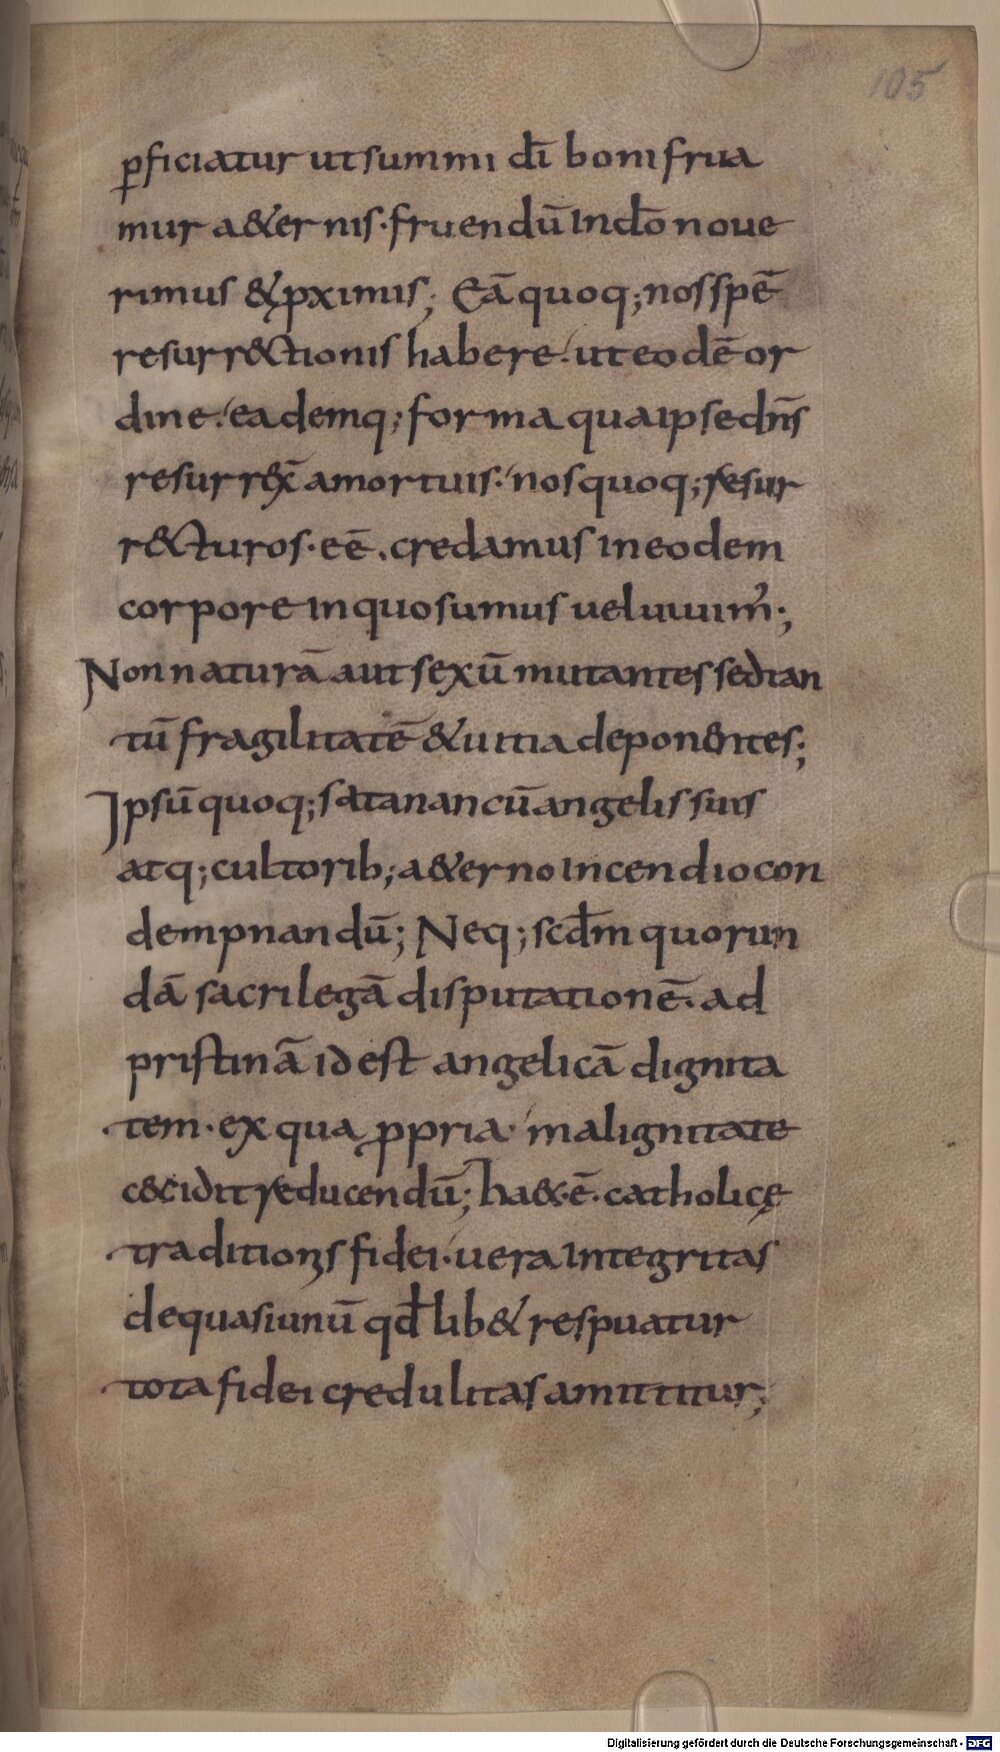 105
ꝑficiatur ut summi dī boni frua
mur a&ernis· fruendū In dō noue
rimus & ꝓximis; Eā quoq; nos spē
resurr&tionis habere· ut eodē or
dine· eademq; forma qua ipse dn̄s
resurr&x̄ a mortuis· nos quoq; resur
r&turos· eē· credamus in eodem
corpore In quo sumus uel uiuim᾽;
Non naturā aut sexū mutantes sed tan
tū fragilitatē & uitia deponentes;
Ipsū quoq; satanan cū angelis suis
atq; cultorib; a&erno Incendio con
dempnandū; Neq; scd̄m quorun
dā sacrilegā disputationē· ad
pristinā id est angelicā dignita
tem· ex qua ꝓpria· malignitate
cecidit reducendū; ha&·ē· catholicę
traditionis fidei· uera Integritas
de qua si unū qd̄ lib& respuatur
tota fidei credulitas amittitur;
Digitalisierung gefördert durch die Deutsche Forschungsgemeinschaft - DFG